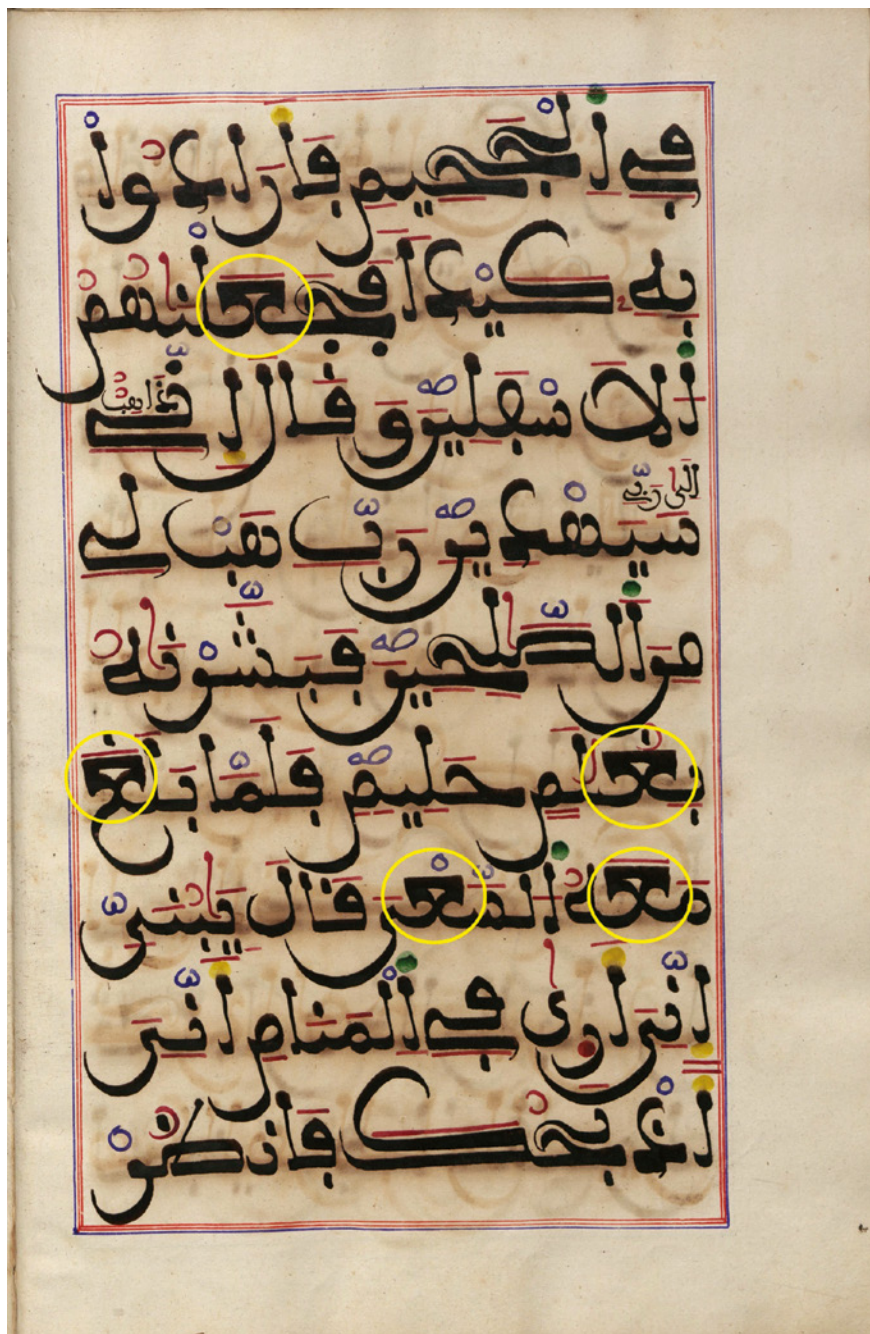 في الجحيم فارادوا
به كيدا فجعلنهم
الاسفلين وقال اني ذاهب
الى ربي سيهدين رب هب لي
من الصلحين فبشرنه
بغلم حليم فلما بلغ
معه السعي قال يبني
اني ارى في المنام اني
اذبحك فانظر